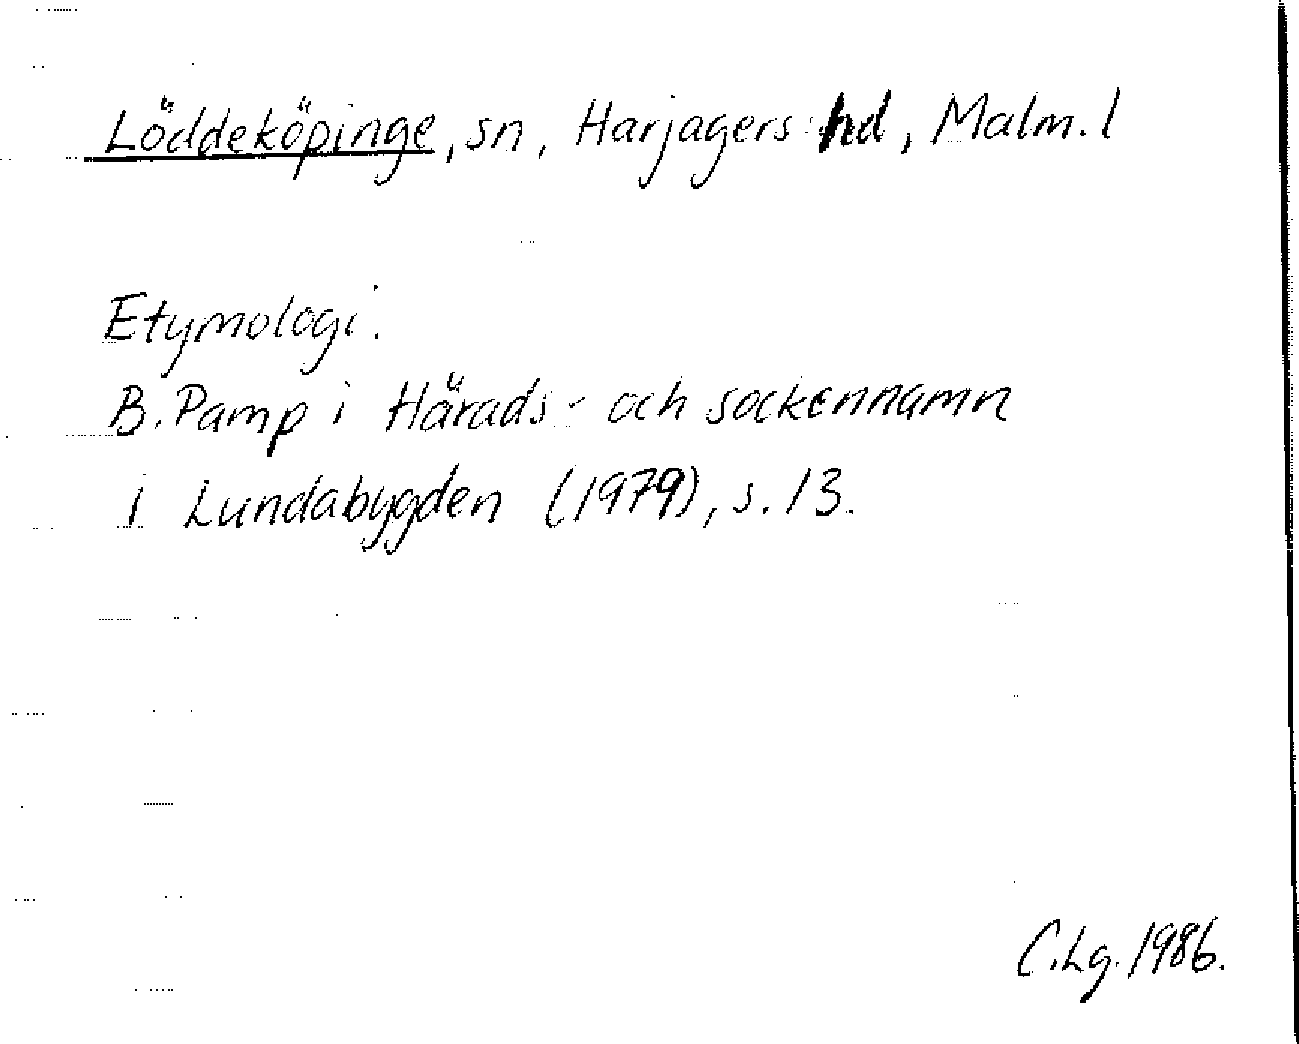 Löddeköpinge, sn, Harjagers hd, Malm. l
Etymologi.
B. Pamp i Härads- och sockennamn
i Lundabygden (1979), s. 13.
C.Lg. 1986.